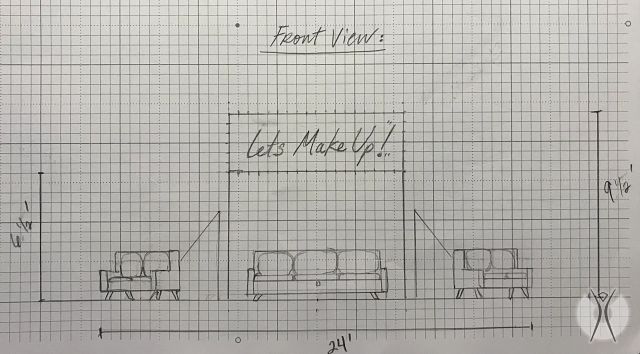 Front View:
Let's Make Up!!
6 1/2'
9 1/2'
24'